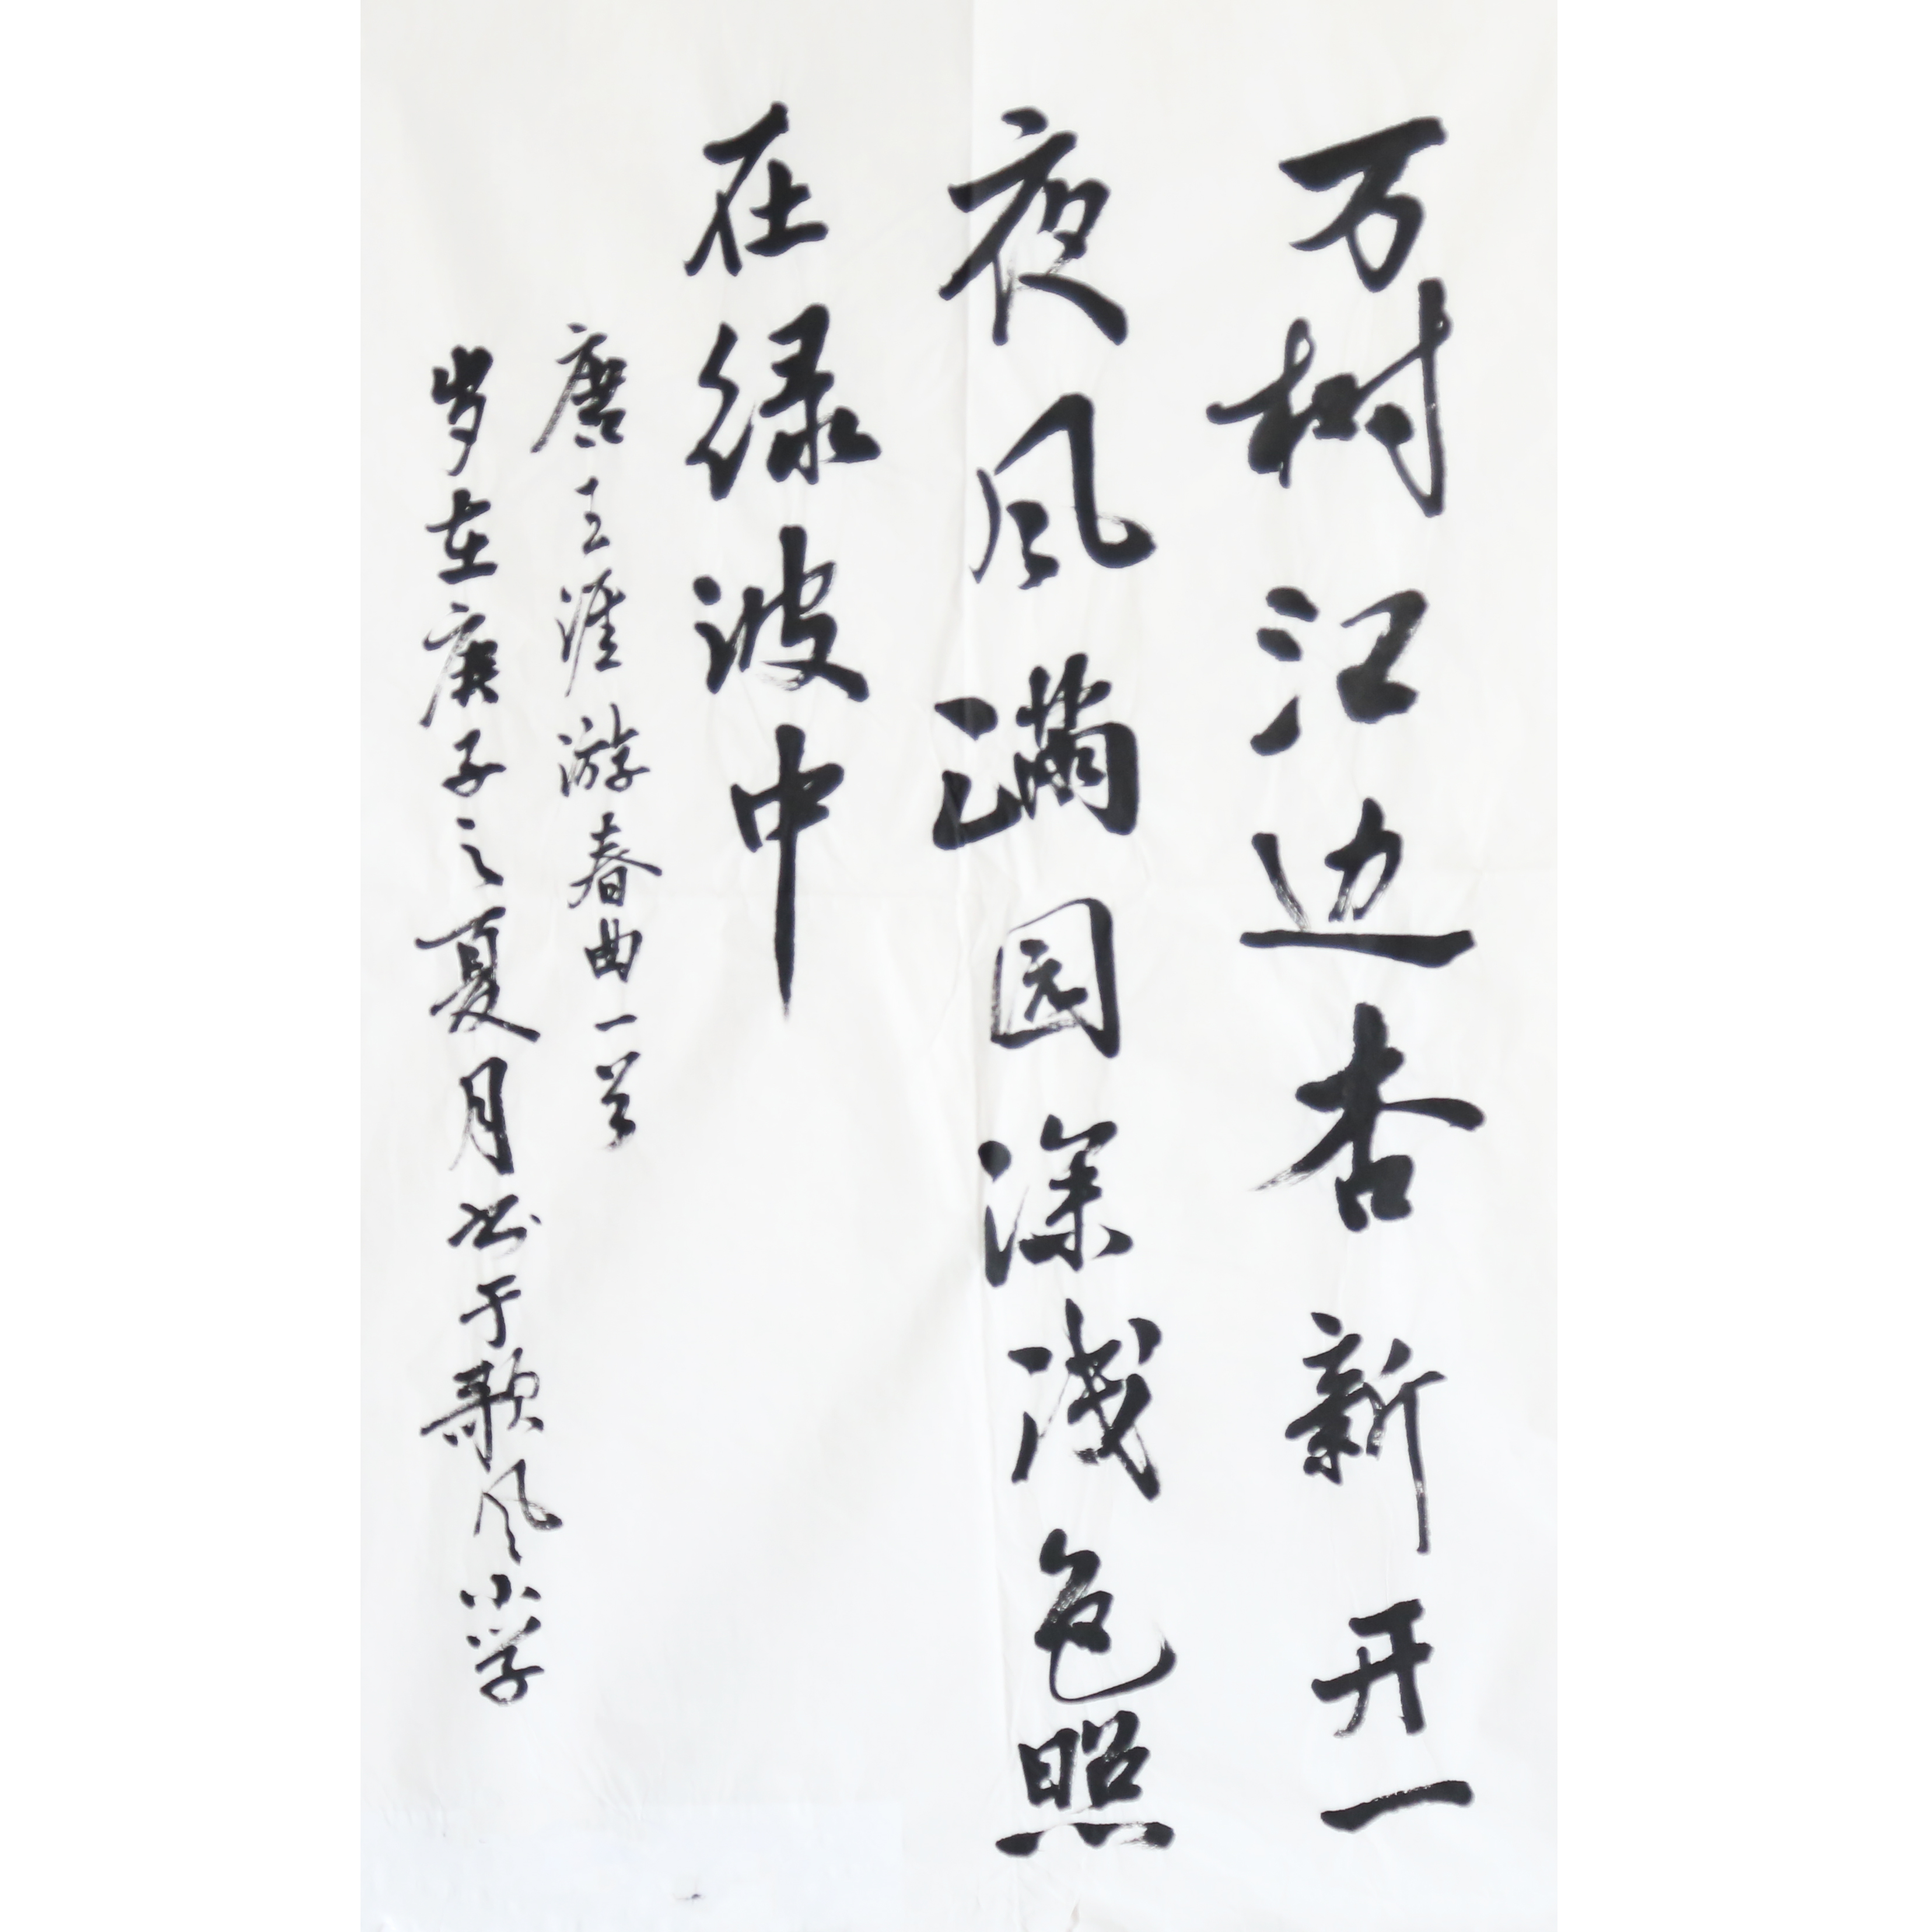 万树江边杏新开一
夜风满园深浅色照
在绿波中
唐王涯游春曲一首
岁在庚子之夏月书于歌风小学